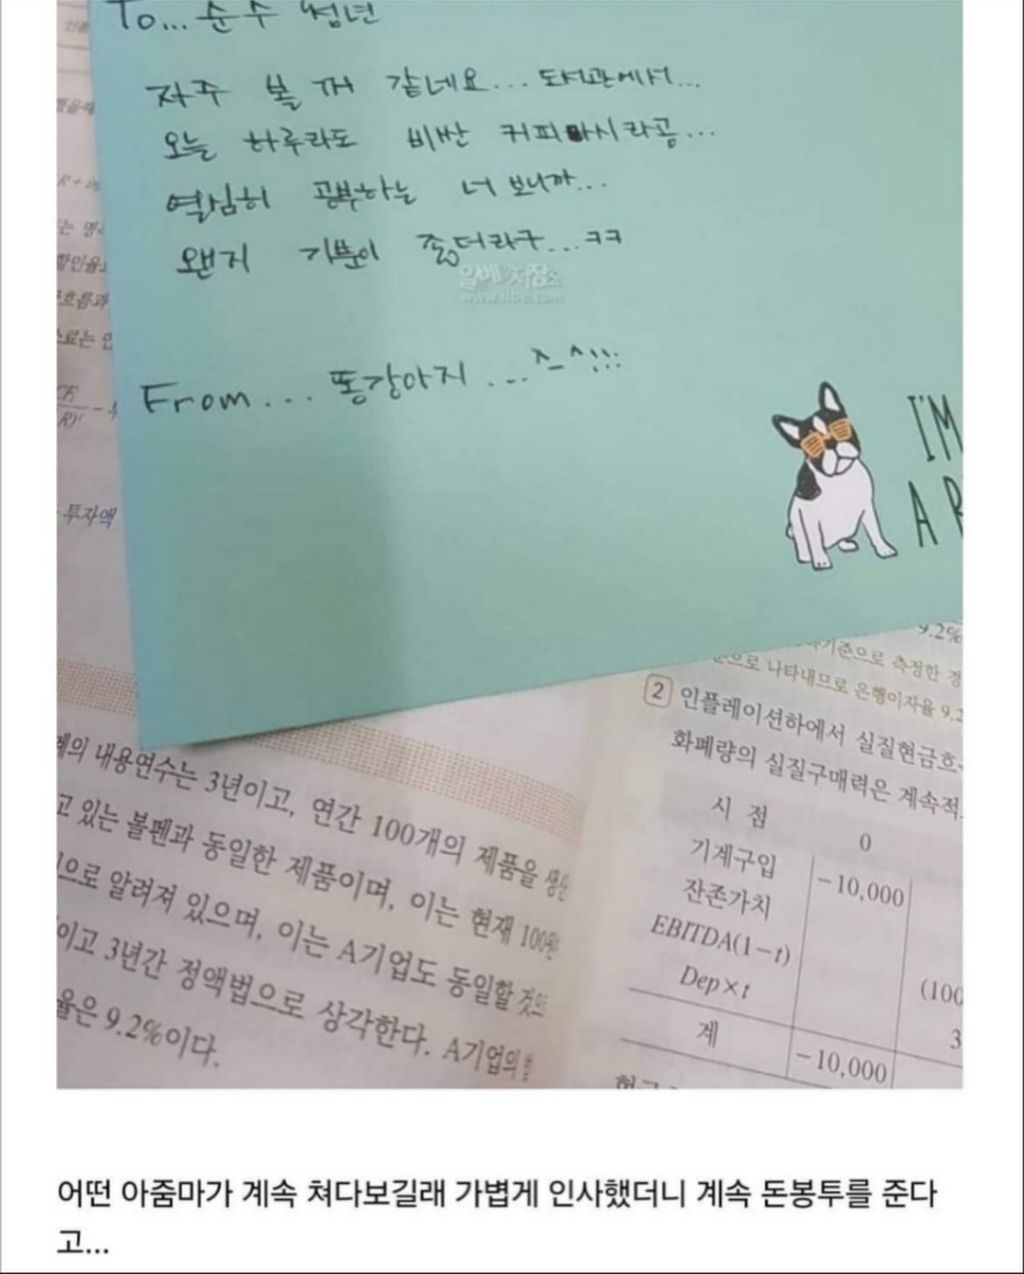 To... 순수 청년
자주 볼 꺼 같네요... 도서관에서...
오늘 하루라도 비싼 커피마시라공...
열심히 공부하는 너 보니까...
왠지 기분이 좋더라구...ㅋㅋ
일베 저장소
www.ilbe.com
From... 똥강아지 ...^_^!!!
I'M
A
투자액
9.2%
기준으로 측정한 경
으로 나타내므로 은행이자율 9.2
2 인플레이션하에서 실질현금흐
화폐량의 실질구매력은 계속적
시 점 0
기계구입 -10,000
잔존가치
EBITDA(1-t)
Dep×t (100
3
계 -10,000
계의 내용연수는 3년이고, 연간 100개의 제품을 생산
고 있는 볼펜과 동일한 제품이며, 이는 현재 100원
으로 알려져 있으며, 이는 A기업도 동일할 것으
이고 3년간 정액법으로 상각한다. A기업의
율은 9.2%이다.
어떤 아줌마가 계속 쳐다보길래 가볍게 인사했더니 계속 돈봉투를 준다
고...